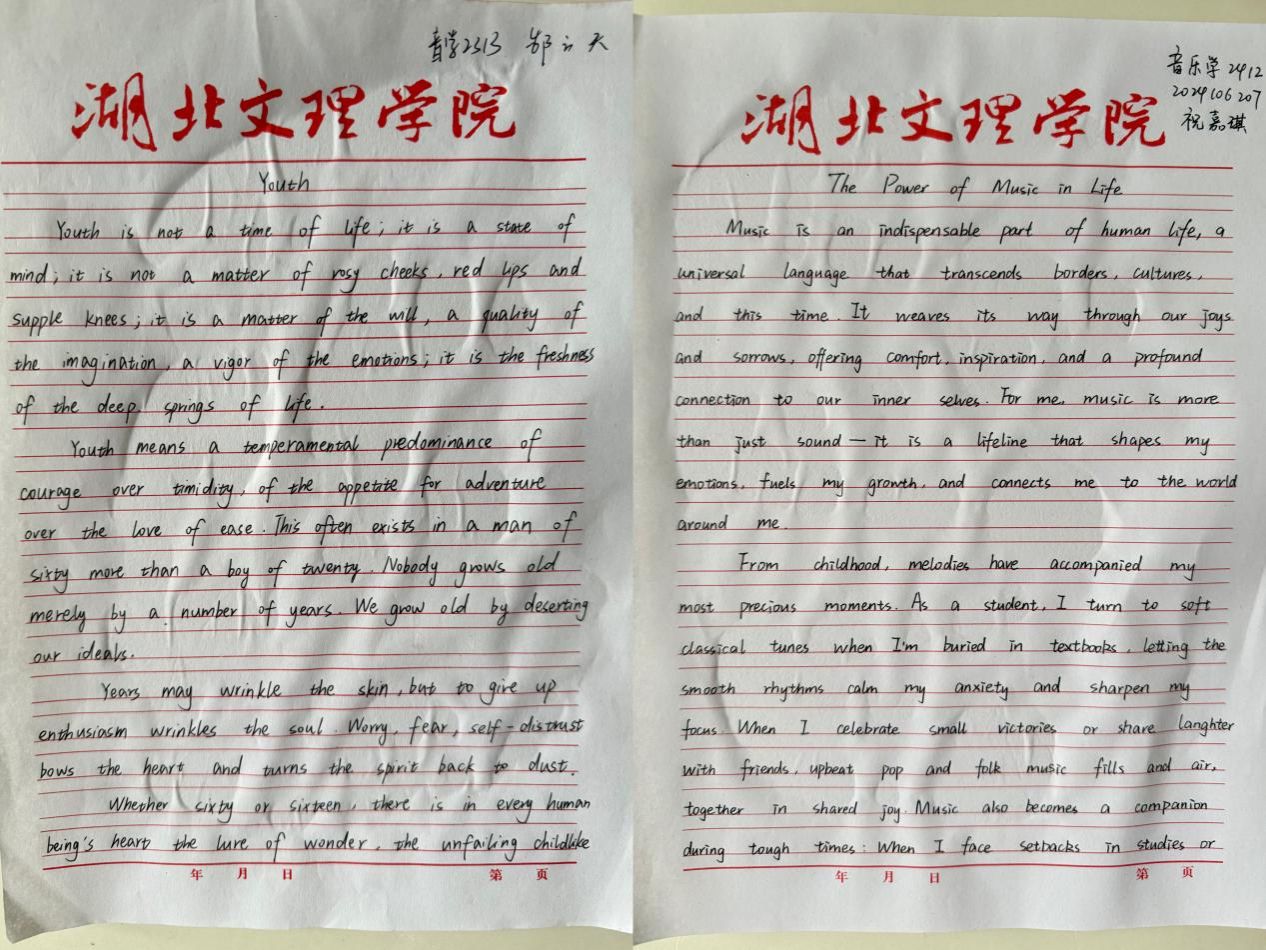 音学2313 郜云天
湖北文理学院
Youth
Youth is not a time of life; it is a state of
mind; it is not a matter of rosy cheeks, red lips and
supple knees; it is a matter of the will, a quality of
the imagination, a vigor of the emotions; it is the freshness
of the deep springs of life.
Youth means a temperamental predominance of
courage over timidity, of the appetite for adventure
over the love of ease. This often exists in a man of
sixty more than a boy of twenty. Nobody grows old
merely by a number of years. We grow old by deserting
our ideals.
Years may wrinkle the skin, but to give up
enthusiasm wrinkles the soul. Worry, fear, self-distrust
bows the heart and turns the spirit back to dust.
Whether sixty or sixteen, there is in every human
being's heart the lure of wonder, the unfailing childlike
年 月 日 第 页
音乐学2412
2024106207
祝嘉琪
湖北文理学院
The Power of Music in Life
Music is an indispensable part of human life, a
universal language that transcends borders, cultures,
and this time. It weaves its way through our joys
and sorrows, offering comfort, inspiration, and a profound
connection to our inner selves. For me, music is more
than just sound — it is a lifeline that shapes my
emotions, fuels my growth, and connects me to the world
around me.
From childhood, melodies have accompanied my
most precious moments. As a student, I turn to soft
classical tunes when I'm buried in textbooks, letting the
smooth rhythms calm my anxiety and sharpen my
focus. When I celebrate small victories or share langhter
with friends, upbeat pop and folk music fills and air,
together in shared joy. Music also becomes a companion
during tough times: When I face setbacks in studies or
年 月 日 第 页